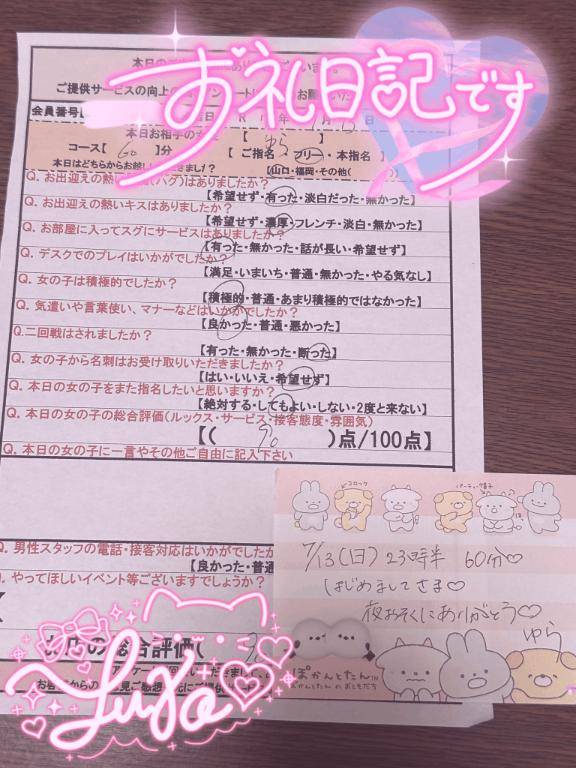 お礼日記です
ご提供サービスの向上の
会員番号【
本日お相手の
【 ゆら 】
コース【 60 】分
【 ご指名・フリー・本指名 】
本日はどちらから
【山口・福岡・その他(
Q. お出迎えの熱い
(ハグ)はありましたか?
【希望せず・有った・淡白だった・無かった】
Q. お出迎えの熱いキスはありましたか?
【希望せず・濃厚・フレンチ・淡白・無かった】
Q. お部屋に入ってスグにサービスはありましたか?
【有った・無かった・話が長い・希望せず】
Q. デスクでのプレイはいかがでしたか?
【満足・いまいち・普通・無かった・やる気なし】
Q. 女の子は積極的でしたか?
【積極的・普通・あまり積極的ではなかった】
Q. 気遣いや言葉使い、マナーなどはいかがでしたか?
【良かった・普通・悪かった】
Q.二回戦はされましたか?
【有った・無かった・断った】
Q. 女の子から名刺はお受け取りいただきましたか?
【はい・いいえ・希望せず】
Q. 本日の女の子をまた指名したいと思いますか?
【絶対する・してもよい・しない・2度と来ない】
Q. 本日の女の子の総合評価(ルックス・サービス・接客態度・雰囲気)
【( 90 )点/100点】
Q. 本日の女の子に一言やその他ご自由に記入下さい
コロッケ
パーティー帽子
7/13(日) 23時半 60分♡
はじめましてさま♡
夜おそくにありがとう♡
ゆら
Q. 男性スタッフの電話・接客対応はいかがでしたか
【良かった・普通
Q. やってほしいイベント等ございますでしょうか?
の総合評価(
Yura
ぽかんとたん